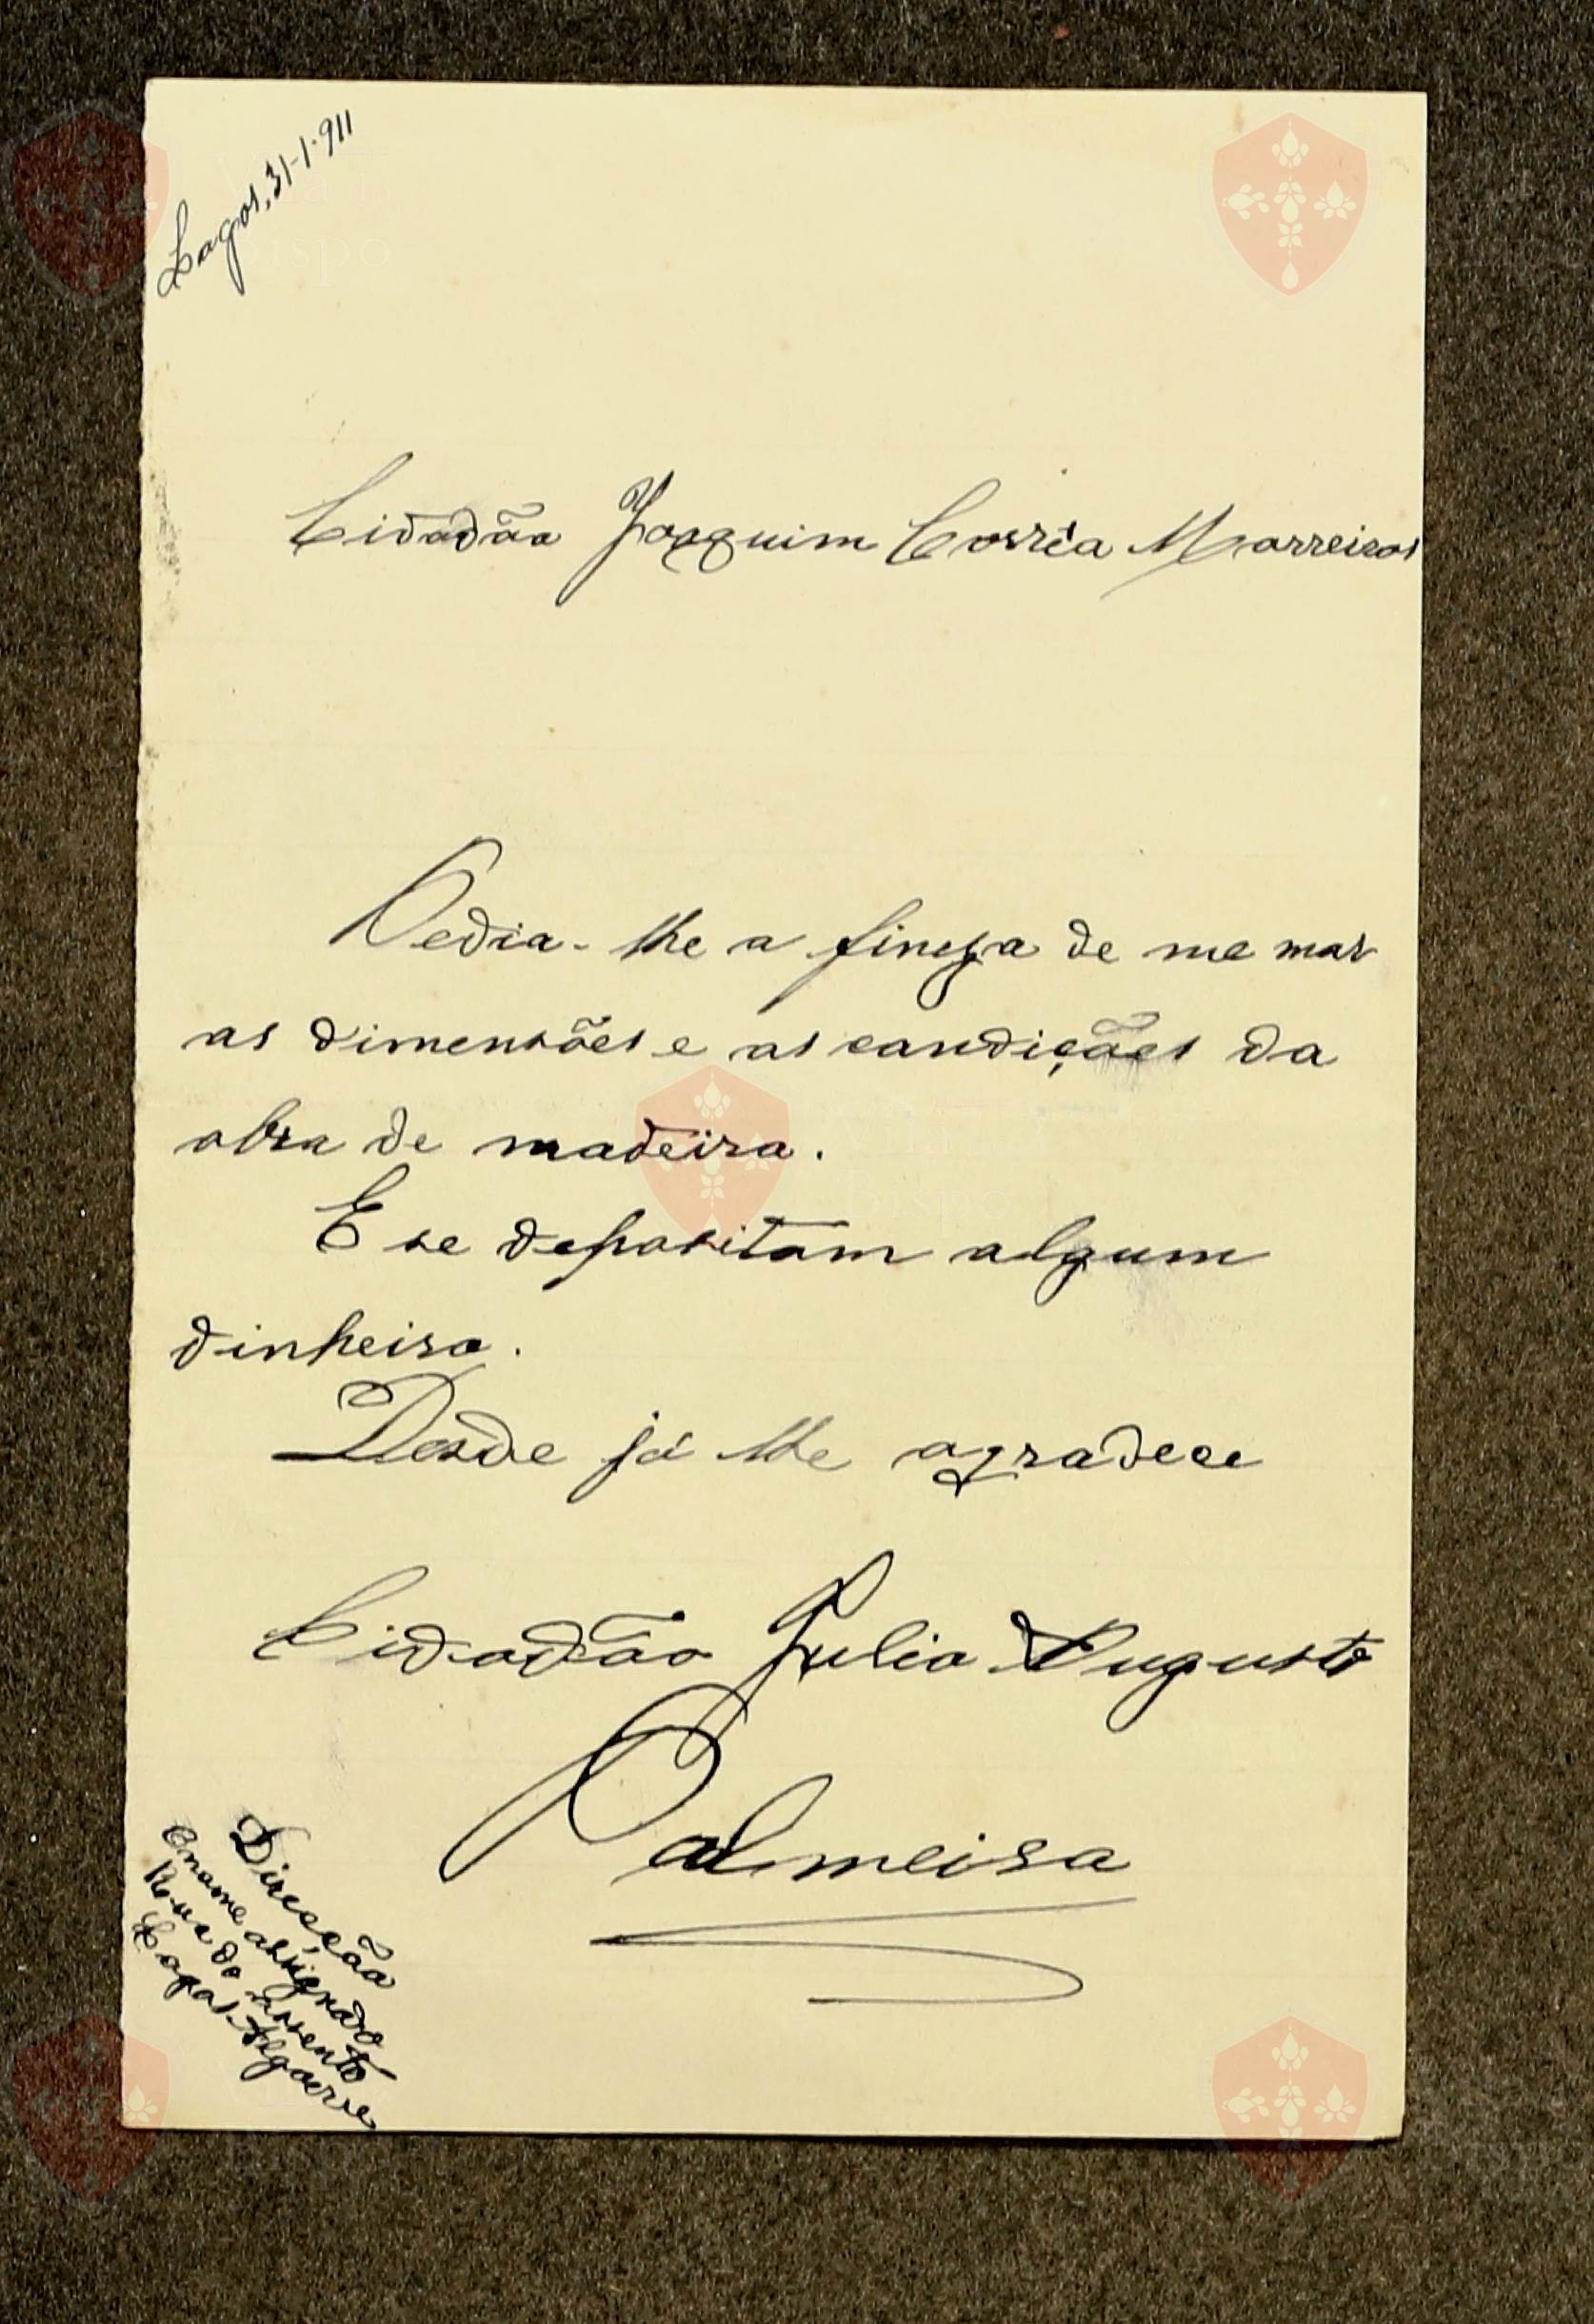 Lagos, 31-1-911
Cidadão Joaquim Corrêa Marreiros
Pedia-lhe a fineza de me
as dimensões e as condições da
obra de madeira.
E se depositam algum
dinheiro.
Desde já lhe agradece
Cidadão Julio Augusto
Palmeira
Direcção
O nome assignado
Rua do assento
Lagos-Algarve